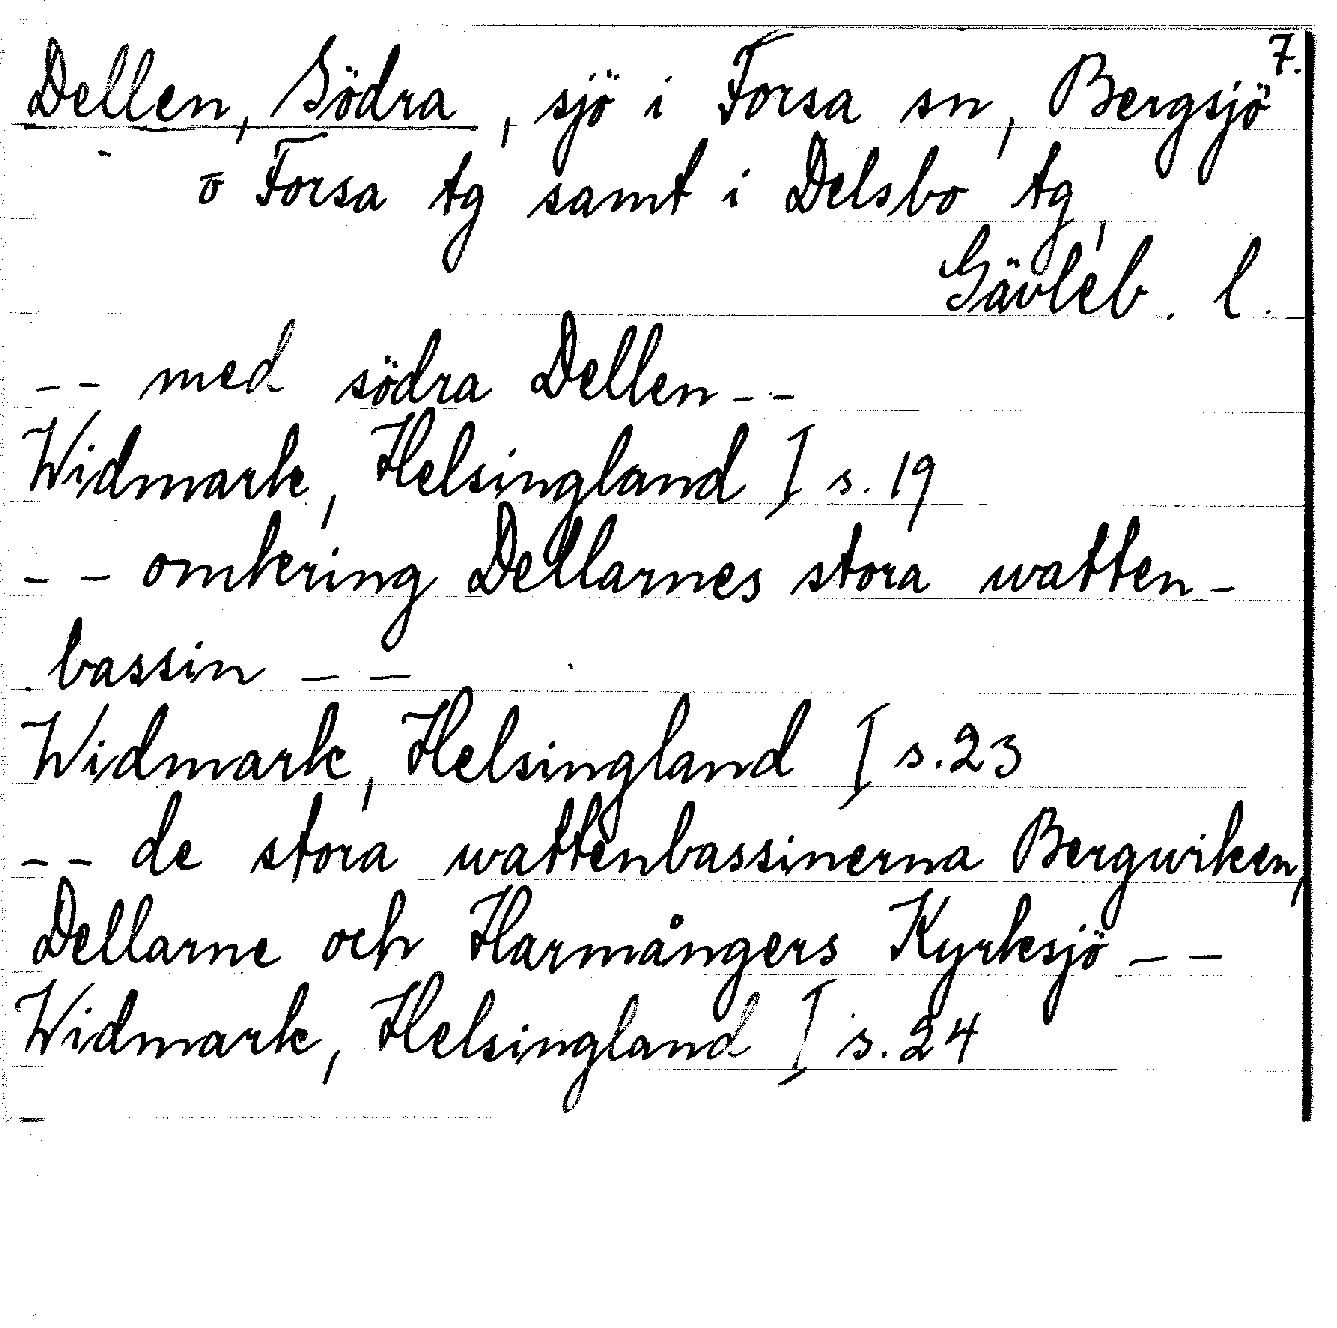 7.
Dellen, Södra, sjö i Forsa sn, Bergsjö
o Forsa tg samt i Delsbo tg,
Gävleb. l.
-- med södra Dellen --
Widmark, Helsingland I s. 19
-- omkring Dellarnes stora watten-
bassin --
Widmark, Helsingland I s. 23
-- de stora wattenbassinerna Bergwiken,
Dellarne och Harmångers Kyrksjö --
Widmark, Helsingland I s. 24